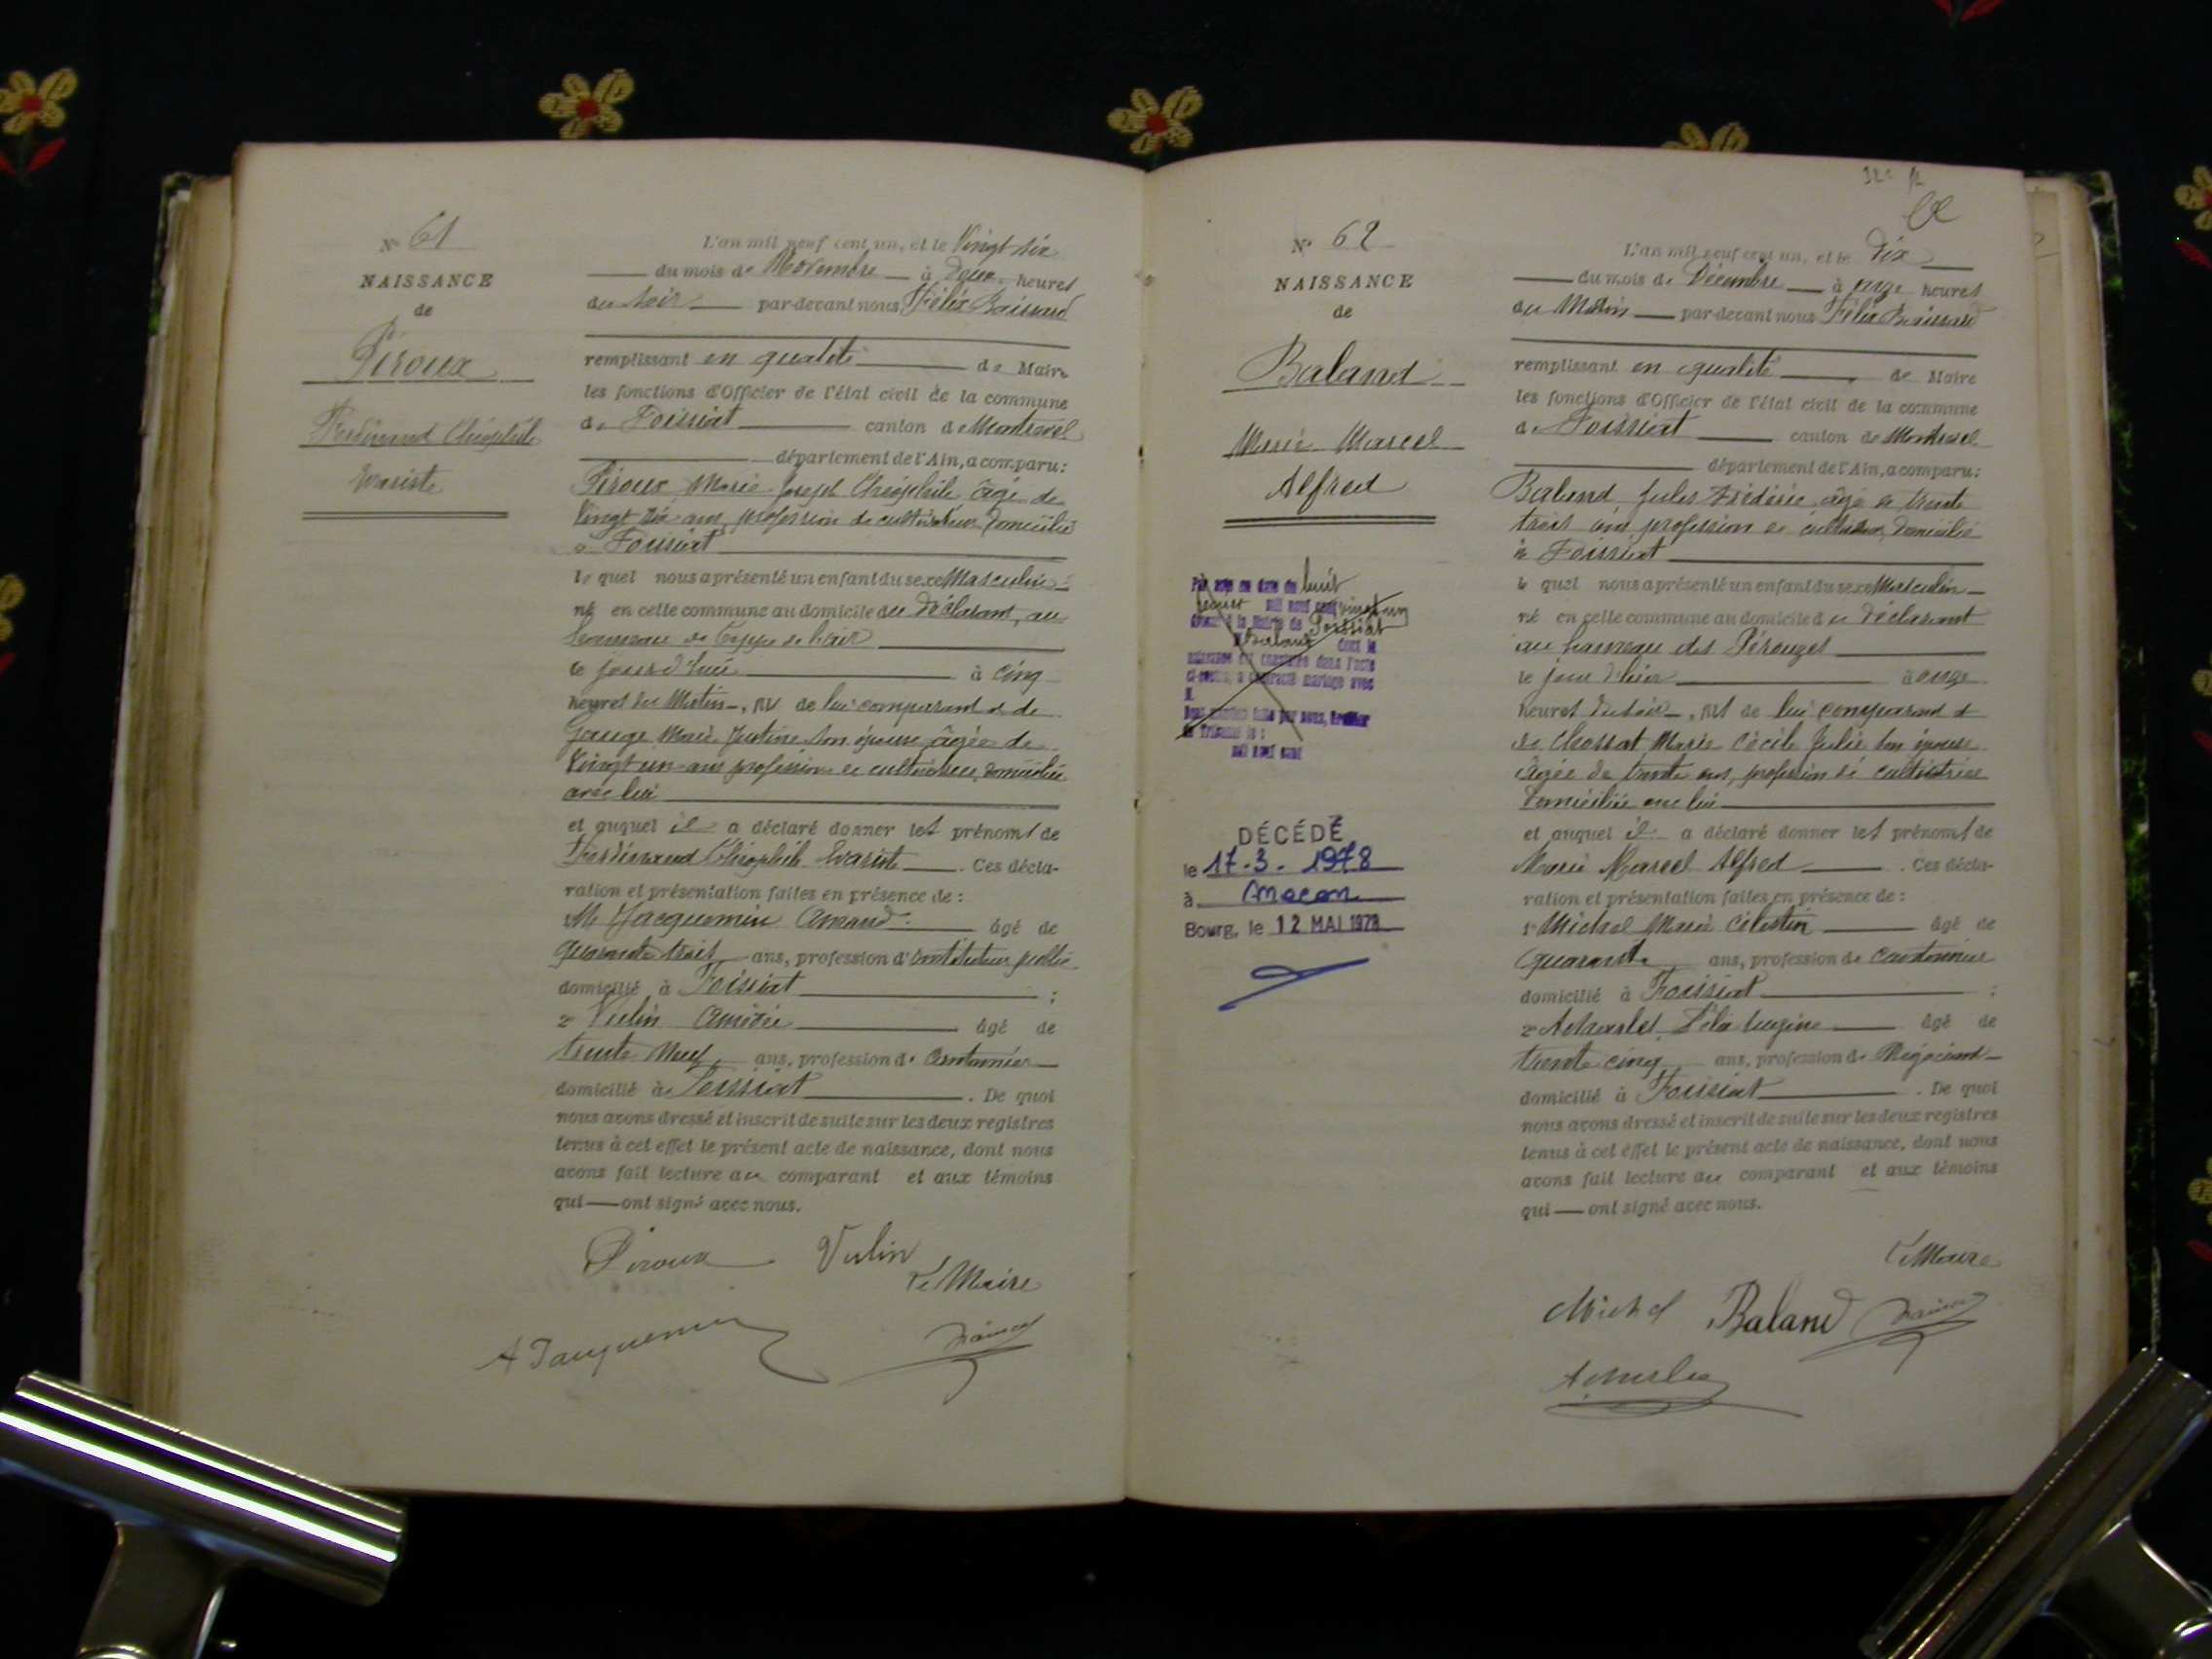 N° 61
NAISSANCE
de
Piroux
Ferdinand Théophile
Evariste
L'an mil neuf cent un, et le Vingt six
du mois de Novembre à Deux heures
du soir par-devant nous Félix Baissard
remplissant en qualité de Maire
les fonctions d'Officier de l'état civil de la commune
de Foissiat canton de Montrevel
département de l'Ain, a comparu:
Piroux Marie Joseph Théophile âgé de
Vingt six ans, profession de cultivateur, domicilié
à Foissiat
le quel nous a présenté un enfant du sexe Masculin
né en cette commune au domicile du Déclarant, au
hameau de
le jour d'hui à cinq
heures du Matin, né de lui comparant et de
Gauge Marie Justine son épouse, âgée de
Vingt un ans profession de cultivatrice, domiciliée
avec lui
et auquel il a déclaré donner les prénoms de
Ferdinand Théophile Evariste. Ces décla-
ration et présentation faites en présence de:
M. Jacquemin Amand âgé de
Quarante trois ans, profession d'instituteur public
domicilié à Foissiat ;
2° Vulin Amédée âgé de
trente neuf ans, profession de Cantonnier
domicilié à Foissiat. De quoi
nous avons dressé et inscrit de suite sur les deux registres
tenus à cet effet le présent acte de naissance, dont nous
avons fait lecture au comparant et aux témoins
qui ont signé avec nous.
Piroux Vulin
Le Maire
A Jacquemin
N° 62
NAISSANCE
de
Baland
Marie Marcel
Alfred
huit
mil neuf cent vingt un
à la Mairie de Foissiat
Baland dont la
naissance est constatée dans l'acte
ci-contre, a contracté mariage avec
M
par nous, Greffier
du Tribunal le :
mil neuf cent
DÉCÉDÉ
le 17-3-1978
à Macon
Bourg, le 12 MAI 1978
L'an mil neuf cent un, et le Dix
du mois de Décembre à onze heures
du Matin par-devant nous Félix Baissard
remplissant en qualité de Maire
les fonctions d'Officier de l'état civil de la commune
de Foissiat canton de Montrevel
département de l'Ain, a comparu:
Baland Jules Frédéric âgé de trente
trois ans profession de cultivateur, domicilié
à Foissiat
le quel nous a présenté un enfant du sexe Masculin
né en cette commune au domicile du déclarant
au hameau des Pérouzes
le jour d'hier à onze
heures du soir, né de lui comparant et
de Chossat Marie Cécile Julie son épouse
âgée de trente ans, profession de cultivatrice
domiciliée avec lui
et auquel il a déclaré donner les prénoms de
Marie Marcel Alfred. Ces décla-
ration et présentation faites en présence de:
1° Michel Marie Célestin âgé de
quarante ans, profession de cantonnier
domicilié à Foissiat ;
2° Félix Eugène âgé de
trente cinq ans, profession de Négociant
domicilié à Foissiat. De quoi
nous avons dressé et inscrit de suite sur les deux registres
tenus à cet effet le présent acte de naissance, dont nous
avons fait lecture au comparant et aux témoins
qui ont signé avec nous.
Le Maire
Michel Baland